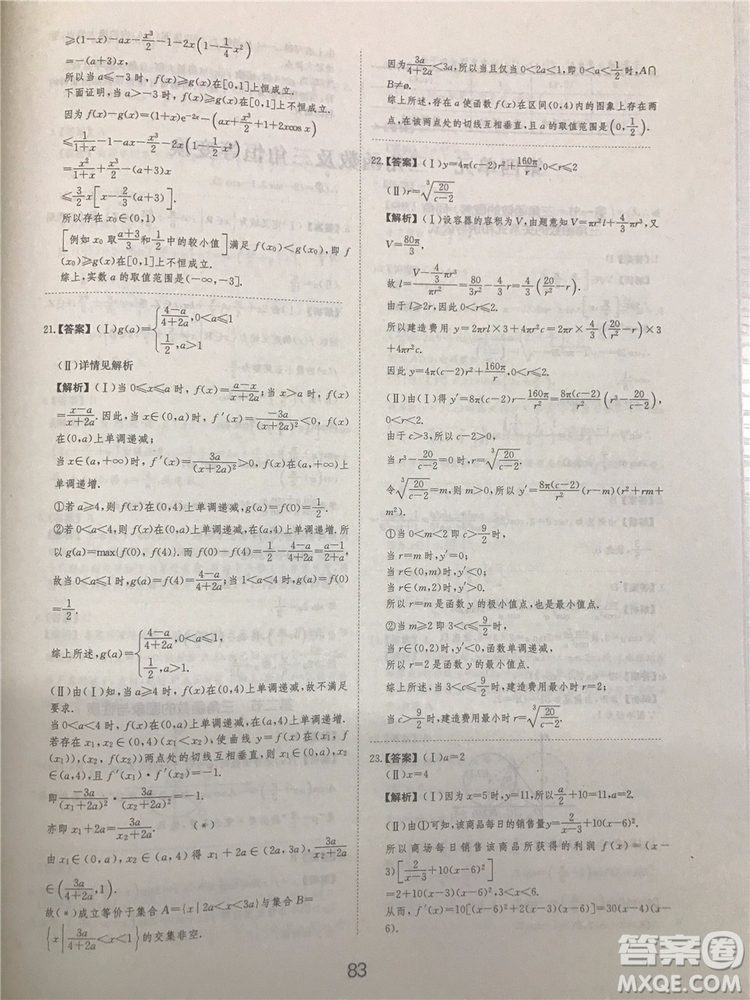 ≥(1-x)-ax-\frac{x^3}{2}-1-2x(1-\frac{1}{4}x^2)
=-(a+3)x,
所以当a≤-3时,f(x)≥g(x)在[0,1]上恒成立.
下面证明,当a>-3时,f(x)≥g(x)在[0,1]上不恒成立.
因为f(x)-g(x)=(1+x)e^{-2x}-(ax+\frac{x^3}{2}+1+2xcos x)
≤\frac{1}{1+x}-1-ax-\frac{x^3}{2}-2xcos x
=\frac{x^2}{1+x}+\frac{x^3}{2}-(a+3)x
≤\frac{3}{2}x[x-\frac{2}{3}(a+3)].
所以存在x_0∈(0,1)
[例如x_0取\frac{a+3}{3}和\frac{1}{2}中的较小值]满足f(x_0)<g(x_0),即f
(x)≥g(x)在[0,1]上不恒成立.
综上,实数a的取值范围是(-∞,-3].
21.【答案】(Ⅰ)g(a)={\frac{4-a}{4+2a},0<a≤1
\frac{1}{2},a>1
(Ⅱ)详情见解析
【解析】(Ⅰ)当0≤x≤a时,f(x)=\frac{a-x}{x+2a};当x>a时,f(x)
=\frac{x-a}{x+2a}.因此,当x∈(0,a)时,f'(x)=\frac{-3a}{(x+2a)^2}<0,f(x)
在(0,a)上单调递减;
当x∈(a,+∞)时,f'(x)=\frac{3a}{(x+2a)^2}>0,f(x)在(a,+∞)上单调
递增.
①若a≥4,则f(x)在(0,4)上单调递减,g(a)=f(0)=\frac{1}{2}.
②若0<a<4,则f(x)在(0,a)上单调递减,在(a,4)上单调递增.所
以g(a)=max{f(0),f(4)}.而f(0)-f(4)=\frac{1}{2}-\frac{4-a}{4+2a}=\frac{a-1}{2+a},
故当0<a≤1时,g(a)=f(4)=\frac{4-a}{4+2a};当1<a<4时,g(a)=f(0)=
\frac{1}{2}.
综上所述,g(a)={\frac{4-a}{4+2a},0<a≤1,
\frac{1}{2},a>1.
(Ⅱ)由(Ⅰ)知,当a≥4时,f(x)在(0,4)上单调递减,故不满足
要求.
当0<a<4时,f(x)在(0,a)上单调递减,在(a,4)上单调递增.
若存在x_1,x_2∈(0,4)(x_1<x_2),使曲线y=f(x)在(x_1,f
(x_1)),(x_2,f(x_2))两点处的切线互相垂直,则x_1∈(0,a),x_2∈
(a,4),且f'(x_1)·f'(x_2)=-1.
即\frac{-3a}{(x_1+2a)^2}·\frac{3a}{(x_2+2a)^2}=-1.
亦即x_1+2a=\frac{3a}{x_2+2a}. (*)
由x_1∈(0,a),x_2∈(a,4)得x_1+2a∈(2a,3a),\frac{3a}{x_2+2a}
∈(\frac{3a}{4+2a},1).
故(*)成立等价于集合A={x|2a<x<3a}与集合B=
{x|\frac{3a}{4+2a}<x<1}的交集非空.
因为\frac{3a}{4+2a}<3a,所以当且仅当0<2a<1,即0<a<\frac{1}{2}时,A∩
B≠∅.
综上所述,存在a使函数f(x)在区间(0,4)内的图象上存在两
点,在该两点处的切线互相垂直,且a的取值范围是(0,\frac{1}{2}).
22.【答案】(Ⅰ)y=4π(c-2)r^2+\frac{160π}{r},0<r≤2
(Ⅱ)r=\sqrt[3]{\frac{20}{c-2}}
【解析】(Ⅰ)设容器的容积为V,由题意知V=πr^2l+\frac{4}{3}πr^3,又
V=\frac{80π}{3},
故l=\frac{V-\frac{4}{3}πr^3}{πr^2}=\frac{80}{3r^2}-\frac{4}{3}r=\frac{4}{3}(\frac{20}{r^2}-r).
由于l≥2r,因此0<r≤2.
所以建造费用y=2πrl×3+4πr^2c=2πr×\frac{4}{3}(\frac{20}{r^2}-r)×3
+4πr^2c,
因此y=4π(c-2)r^2+\frac{160π}{r},0<r≤2.
(Ⅱ)由(Ⅰ)得y'=8π(c-2)r-\frac{160π}{r^2}=\frac{8π(c-2)}{r^2}(r^3-\frac{20}{c-2}),
0<r<2.
由于c>3,所以c-2>0,
当r^3-\frac{20}{c-2}=0时,r=\sqrt[3]{\frac{20}{c-2}}.
令\sqrt[3]{\frac{20}{c-2}}=m,则m>0,所以y'=\frac{8π(c-2)}{r^2}(r-m)(r^2+rm+
m^2).
①当0<m<2即c>\frac{9}{2}时,
当r=m时,y'=0;
当r∈(0,m)时,y'<0;
当r∈(m,2)时,y'>0.
所以r=m是函数y的极小值点,也是最小值点.
②当m≥2即3<c≤\frac{9}{2}时,
当r∈(0,2)时,y'<0,函数单调递减,
所以r=2是函数y的最小值点.
综上所述,当3<c≤\frac{9}{2}时,建造费用最小时r=2;
当c>\frac{9}{2}时,建造费用最小时r=\sqrt[3]{\frac{20}{c-2}}.
23.【答案】(Ⅰ)a=2
(Ⅱ)x=4
【解析】(Ⅰ)因为x=5时,y=11,所以\frac{a}{2}+10=11,a=2.
(Ⅱ)由①可知,该商品每日的销售量y=\frac{2}{x-3}+10(x-6)^2.
所以商场每日销售该商品所获得的利润f(x)=(x-
3)[\frac{2}{x-3}+10(x-6)^2]
=2+10(x-3)(x-6)^2,3<x<6.
从而,f'(x)=10[(x-6)^2+2(x-3)(x-6)]=30(x-4)(x-
6).
83
答案圈
MXQE.COM